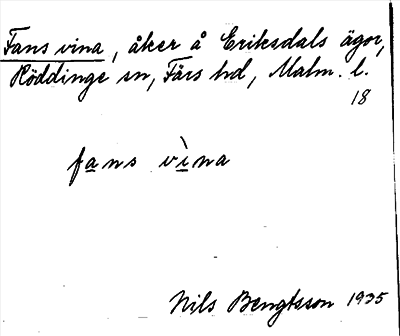 Fans vina, åker å Eriksdals ägor,
Röddinge sn, Färs hd, Malm. l.
18
fans vìna
Nils Bengtsson 1935